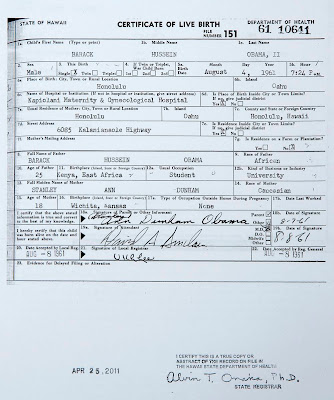 STATE OF HAWAII CERTIFICATE OF LIVE BIRTH DEPARTMENT OF HEALTH
FILE NUMBER 151 61 10641
1a. Child's First Name (Type or print) 1b. Middle Name 1c. Last Name
BARACK HUSSEIN OBAMA, II
2. Sex 3. This Birth 4. If Twin or Triplet, Was Child Born 5a. Birth Date Month Day Year 5b. Hour
Male Single X Twin Triplet August 4, 1961 7:24 P.M.
6a. Place of Birth: City, Town or Rural Location 6b. Island
Honolulu Oahu
6c. Name of Hospital or Institution (If not in hospital or institution, give street address) 6d. Is Place of Birth Inside City or Town Limits? If no, give judicial district
Kapiolani Maternity & Gynecological Hospital Yes X No
7a. Usual Residence of Mother: City, Town or Rural Location 7b. Island 7c. County and State or Foreign Country
Honolulu Oahu Honolulu, Hawaii
7d. Street Address 7e. Is Residence Inside City or Town Limits? If no, give judicial district
6085 Kalanianaole Highway Yes No
7f. Mother's Mailing Address 7g. Is Residence on a Farm or Plantation?
Yes No
8. Full Name of Father 9. Race of Father
BARACK HUSSEIN OBAMA African
10. Age of Father 11. Birthplace (Island, State or Foreign Country) 12a. Usual Occupation 12b. Kind of Business or Industry
25 Kenya, East Africa Student University
13. Full Maiden Name of Mother 14. Race of Mother
STANLEY ANN DUNHAM Caucasian
15. Age of Mother 16. Birthplace (Island, State or Foreign Country) 17a. Type of Occupation Outside Home During Pregnancy 17b. Date Last Worked
18 Wichita, Kansas None
I certify that the above stated information is true and correct to the best of my knowledge. 18a. Signature of Parent or Other Informant Parent Other 18b. Date of Signature
Ann Dunham Obama 8-7-61
I hereby certify that this child was born alive on the date and hour stated above. 19a. Signature of Attendant M.D. D.O. Midwife Other 19b. Date of Signature
David A Sinclair 8-8-61
20. Date Accepted by Local Reg. 21. Signature of Local Registrar 22. Date Accepted by Reg. General
AUG -8 1961 AUG -8 1961
23. Evidence for Delayed Filing or Alteration
APR 25, 2011
I CERTIFY THIS IS A TRUE COPY OR
ABSTRACT OF THE RECORD ON FILE IN
THE HAWAII STATE DEPARTMENT OF HEALTH
Alvin T. Onaka, Ph.D.
STATE REGISTRAR